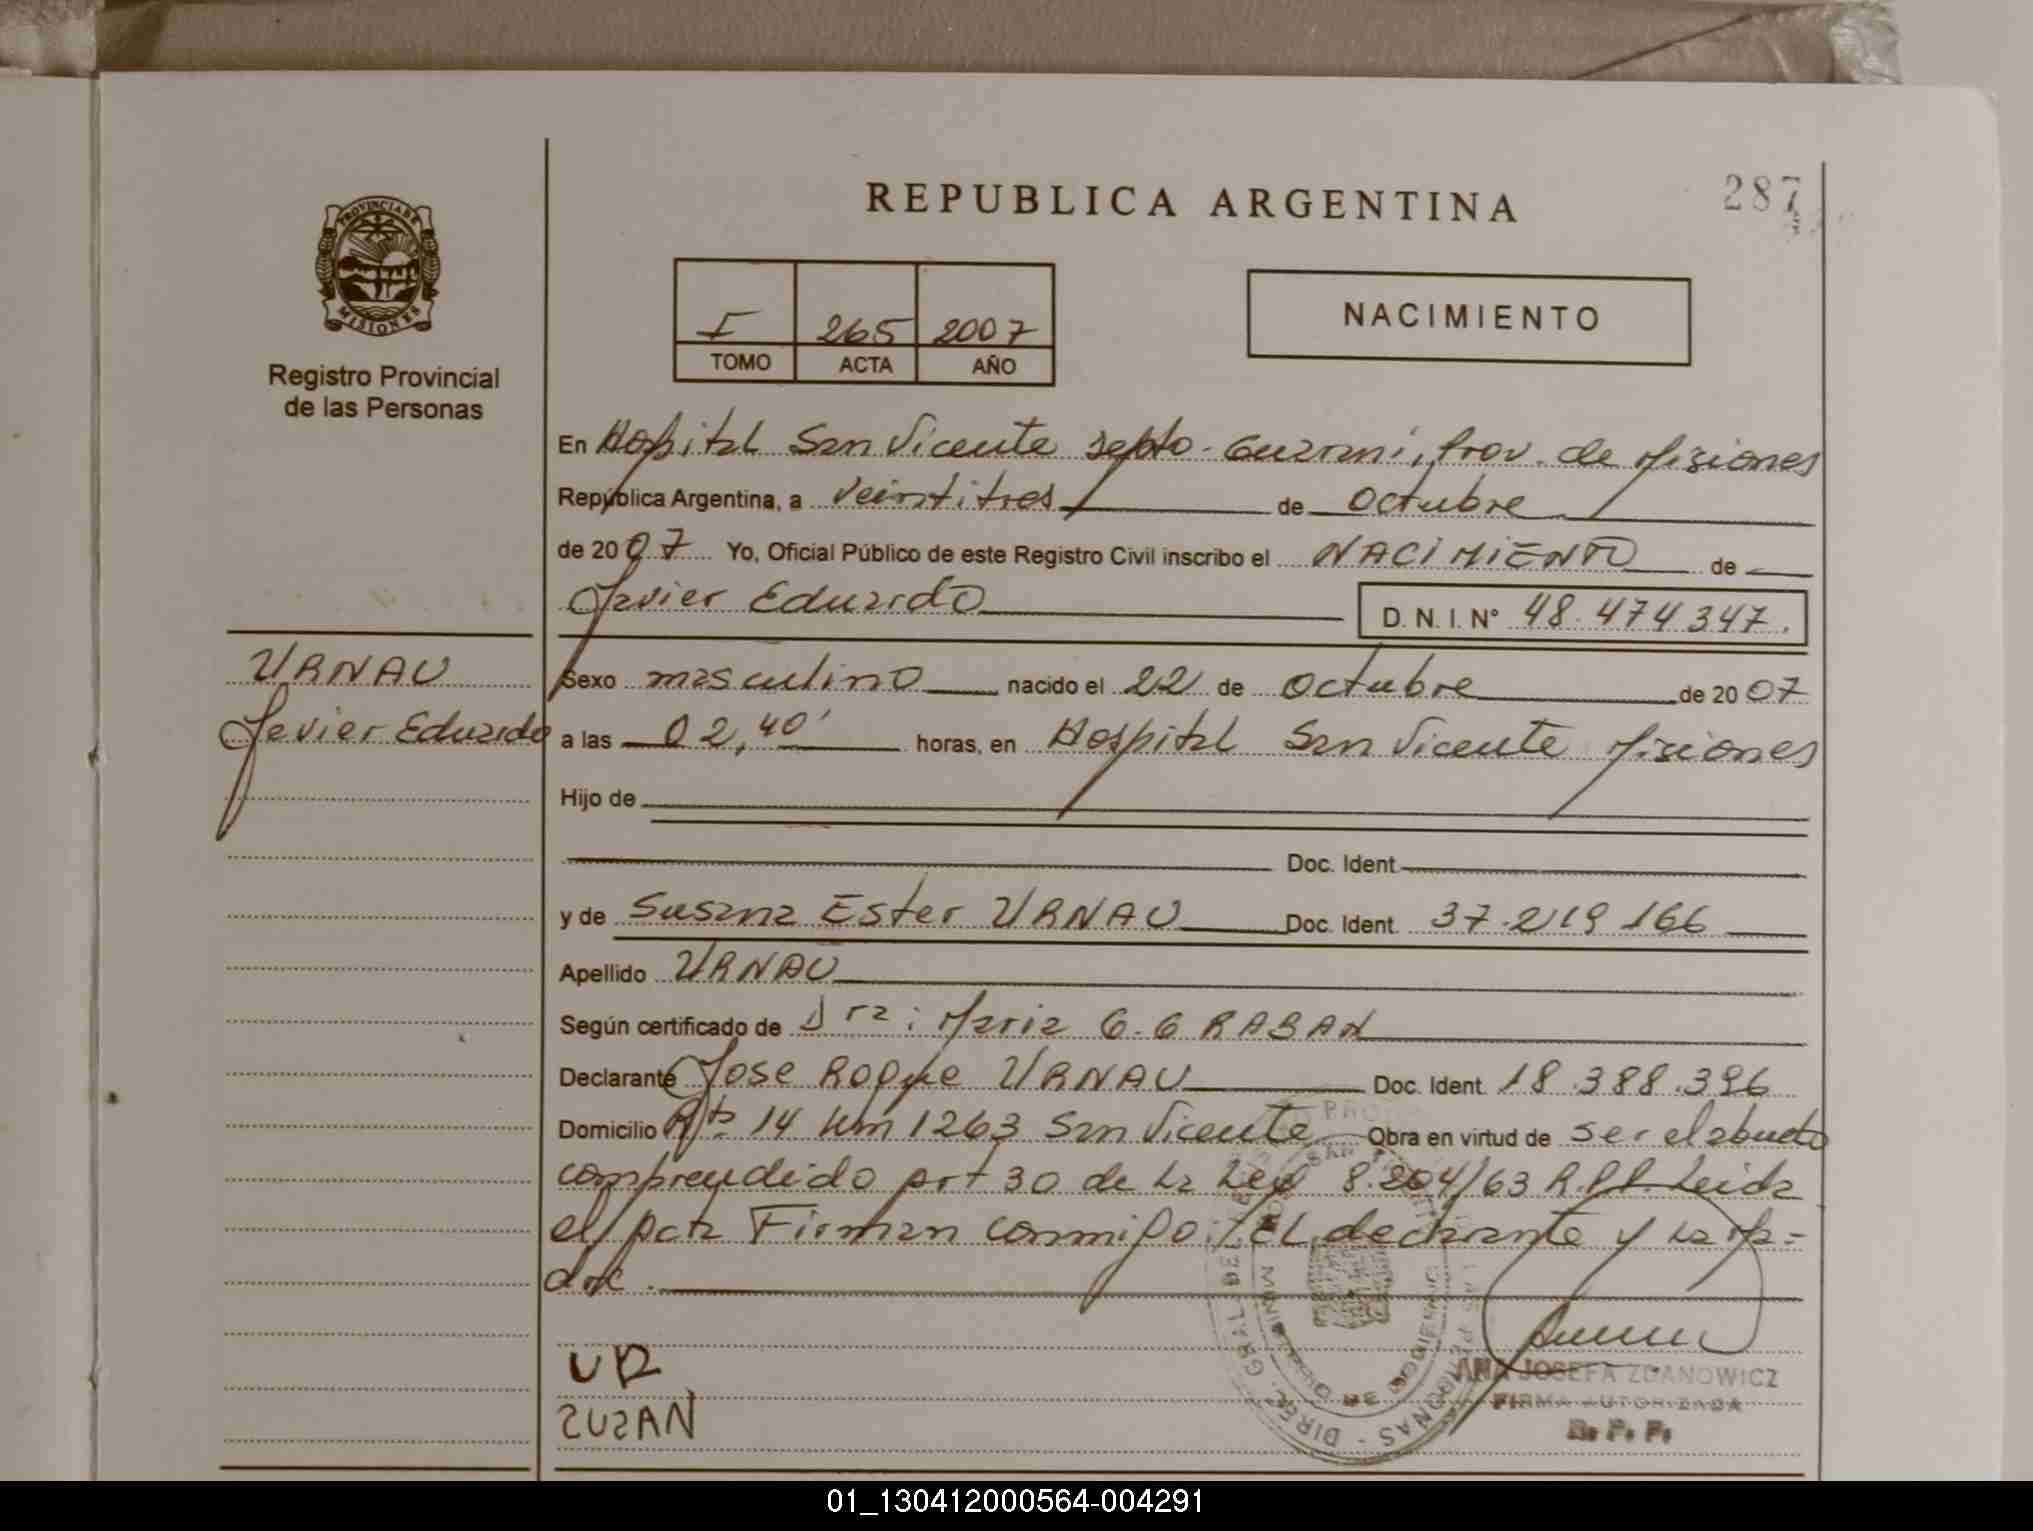 REPUBLICA ARGENTINA
287
PROVINCIA DE
MISIONES
Registro Provincial
de las Personas
I 265 2007
TOMO ACTA AÑO
NACIMIENTO
En Hospital San Vicente Depto. Guarani, Prov. de Misiones
República Argentina, a veintitres de octubre
de 2007 Yo, Oficial Público de este Registro Civil inscribo el NACIMIENTO de
Javier Eduardo D. N. I. N° 48.474347.
URNAU
Javier Eduardo
Sexo masculino nacido el 22 de octubre de 2007
a las 02,40' horas, en Hospital San Vicente Misiones
Hijo de
Doc. Ident.
y de Susana Ester URNAU Doc. Ident. 37.219 166
Apellido URNAU
Según certificado de Dra: Maria G. GRABAN
Declarante Jose Roque URNAU Doc. Ident. 18.388.396
Domicilio Rta 14 km 1263 San Vicente Obra en virtud de ser el abuelo
comprendido art 30 de La Ley 8.204/63 R.P.P. Leida
el acta Firman conmigo: EL declarante y La Ma=
dre.
UR
SUSAN
ANA JOSEFA ZDANOWICZ
FIRMA AUTORIZADA
R. P. P.
01_130412000564-004291